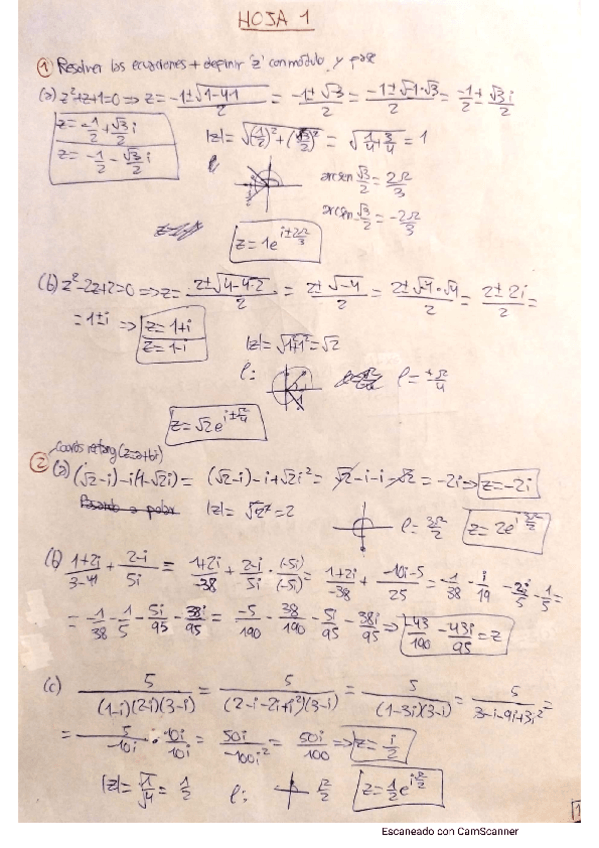 HOJA 1
① Resolver las ecuaciones + definir 'z' con módulo y fase
(a) z²+z+1=0 => z= (-1±√(1-4·1))/2 = (-1±√-3)/2 = (-1±√-1·√3)/2 = (-1±√3i)/2
z=-1/2+√3/2 i
z=-1/2-√3/2 i
|z|=√((1/2)²+(√3/2)²) = √(1/4+3/4) = 1
arcsen √3/2 = 2π/3
arcsen -√3/2 = -2π/3
z=1e^(i±2π/3)
(b) z²-2z+2=0 => z= (2±√(4-4·2))/2 = (2±√-4)/2 = (2±√-1·√4)/2 = (2±2i)/2 =
=1±i => z=1+i
z=1-i
|z|=√(1²+1²)=√2
φ: φ=±π/4
z=√2e^(i±π/4)
Coords rectang (z=a+bi)
② (a) (√2-i)-i(1-√2i) = (√2-i)-i+√2i² = √2-i-i-√2 = -2i => z=-2i
Pasando a polar |z|=√2²=2 φ=3π/2 z=2e^(i3π/2)
(b) (1+2i)/(3-41) + (2-i)/5i = (1+2i)/-38 + (2-i)/5i · (-5i)/(-5i) = (1+2i)/-38 + (-10i-5)/25 = -1/38 - i/19 - 2i/5 - 1/5 =
= -1/38 - 1/5 - 5i/95 - 38i/95 = -5/190 - 38/190 - 5i/95 - 38i/95 => -43/190 - 43i/95 = z
(c) 5/((1-i)(2-i)(3-i)) = 5/((2-i-2i+i²)(3-i)) = 5/((1-3i)(3-i)) = 5/(3-i-9i+3i²) =
= 5/-10i · 10i/10i = 50i/-100i² = 50i/100 => z=i/2
|z|=√(1/4) = 1/2 φ: π/2 z=1/2 e^(iπ/2)
1
Escaneado con CamScanner